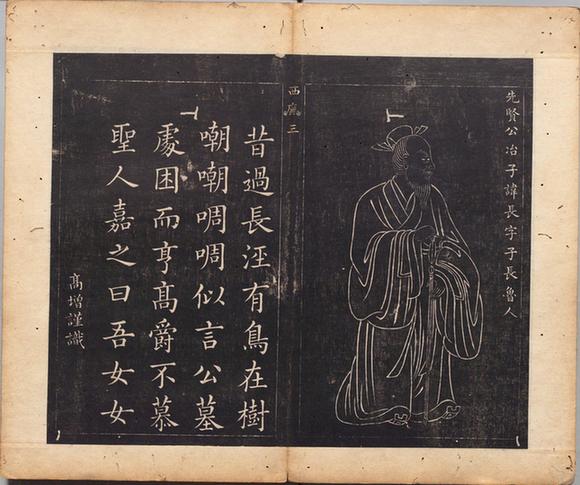 先賢公冶子諱長字子長魯人
西廡三
昔過長涇有鳥在樹
嘲嘲啁啁似言公墓
處困而亨高爵不慕
聖人嘉之曰吾女女
高增謹識